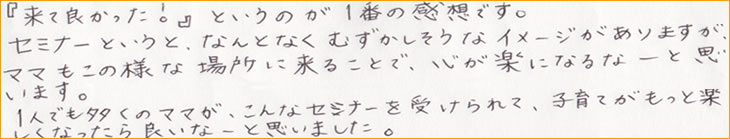 『来て良かった!』というのが1番の感想です。
セミナーというと、なんとなくむずかしそうなイメージがありますが、
ママもこの様な場所に来ることで、心が楽になるなーと思
います。
1人でも多くのママが、こんなセミナーを受けられて、子育てがもっと楽
しくなったら良いなーと思いました。